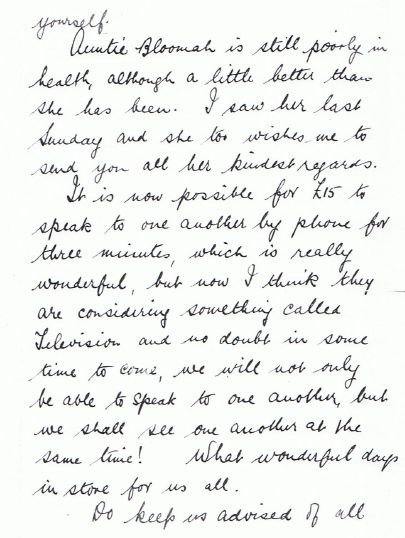 yourself.
Auntie Bloomah is still poorly in
health, although a little better than
she has been. I saw her last
Sunday and she too wishes me to
send you all her kindest regards.
It is now possible for £15 to
speak to one another by phone for
three minutes, which is really
wonderful, but now I think they
are considering something called
Television and no doubt in some
time to come, we will not only
be able to speak to one another, but
we shall see one another at the
same time! What wonderful days
in store for us all.
Do keep us advised of all